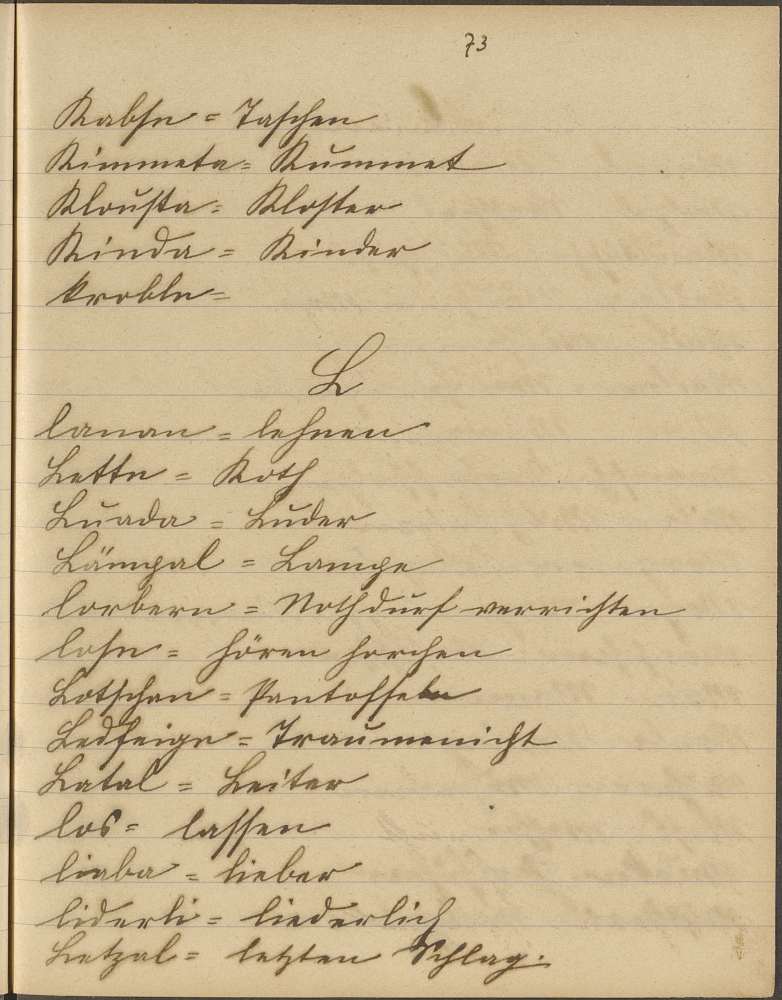 73
Kabsn = Taschen
Kimmeta = Kummet
Klousta = Kloster
Kinda = Kinder
krobln =
L
lanan = lehnen
Lettn = Koth
Luada = Luder
Lämpal = Lampe
lorbern = Nothdurf verrichten
losn = hören horchen
Lotschen = Pantoffeln
Ledfeign = Traumenicht
Latal = Leiter
los = lassen
liaba = lieber
liderli = liederlich
Letzal = letzten Schlag.